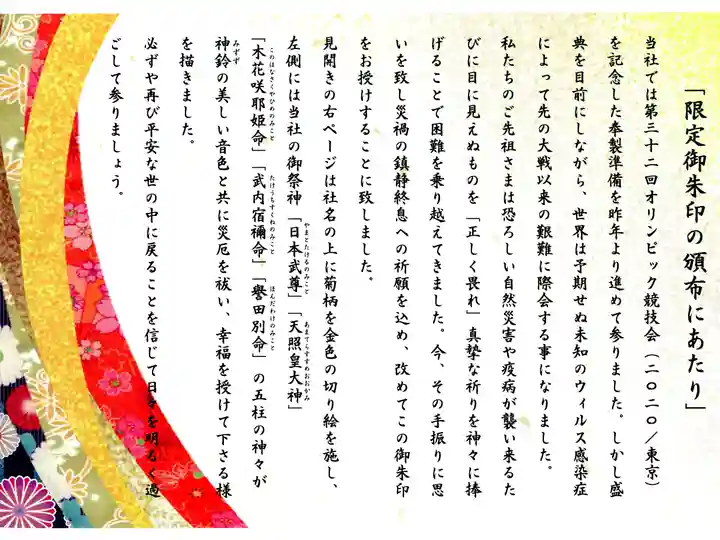 「限定御朱印の頒布にあたり」
当社では第三十二回オリンピック競技会（二〇二〇／東京）
を記念した奉製準備を昨年より進めて参りました。しかし盛
典を目前にしながら、世界は予期せぬ未知のウィルス感染症
によって先の大戦以来の艱難に際会する事になりました。
私たちのご先祖さまは恐ろしい自然災害や疫病が襲い来るた
びに目に見えぬものを「正しく畏れ」真摯な祈りを神々に捧
げることで困難を乗り越えてきました。今、その手振りに思
いを致し災禍の鎮静終息への祈願を込め、改めてこの御朱印
をお授けすることに致しました。
見開きの右ページは社名の上に菊柄を金色の切り絵を施し、
左側には当社の御祭神「日本武尊」「天照皇大神」
やまとたけるのみこと
あまてらすすめおおかみ
「木花咲耶姫命」「武内宿禰命」「誉田別命」の五柱の神々が
このはなさくやひめのみこと
たけうちすくねのみこと
ほんだわけのみこと
神鈴の美しい音色と共に災厄を祓い、幸福を授けて下さる様
みすず
を描きました。
必ずや再び平安な世の中に戻ることを信じて日々を明るく過
ごして参りましょう。